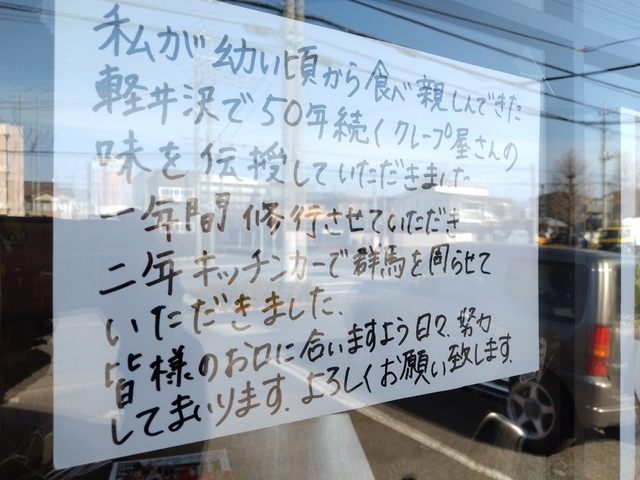 私が幼い頃から食べ親しんできた
軽井沢で50年続くクレープ屋さんの
味を伝授していただきました
一年間修行させていただき
二年キッチンカーで群馬を周らせて
いただきました、
皆様のお口に合いますよう日々、努力
してまいります。よろしくお願い致します。